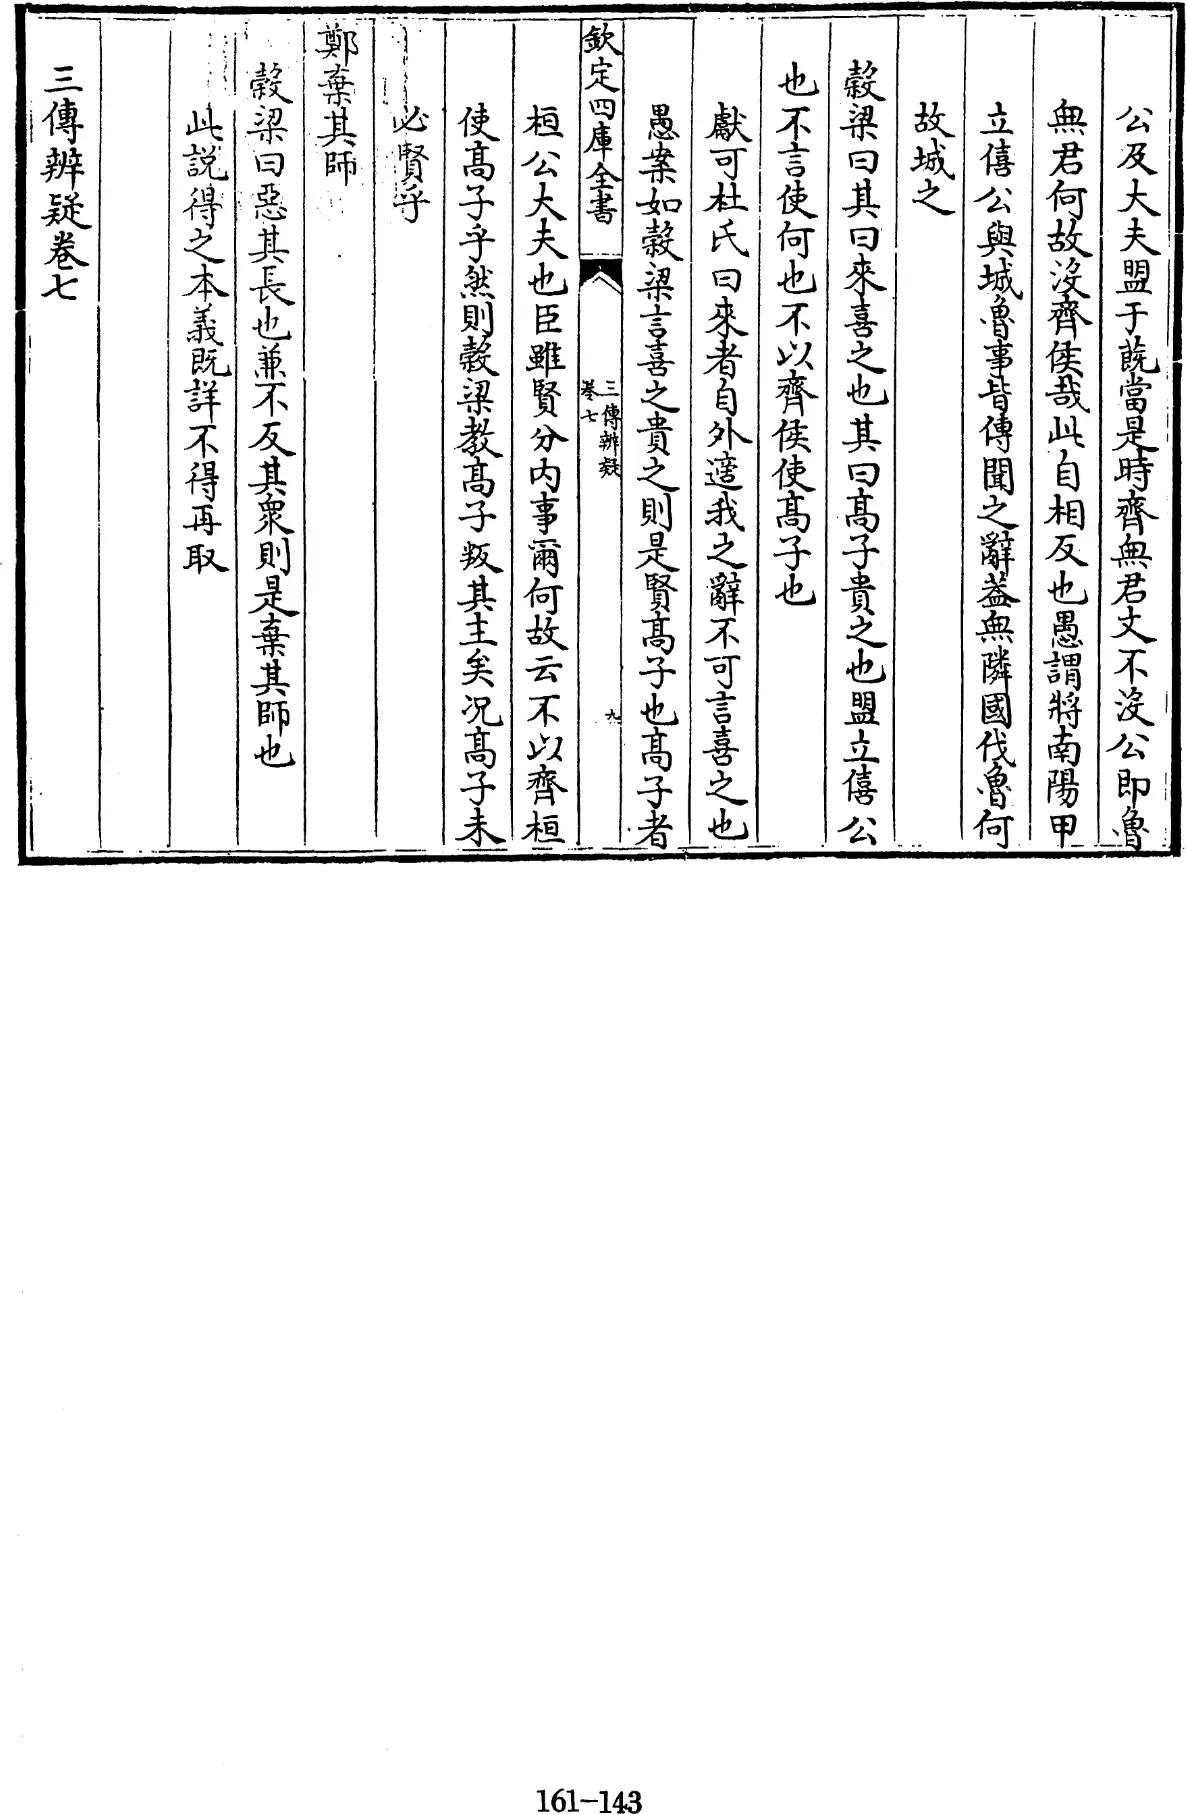 公及大夫盟于蔇當是時齊無君文不没公即魯
無君何故没齊侯哉此自相反也愚謂將南陽甲
立僖公與城魯事皆傳聞之辭葢無隣國伐魯何
故城之
穀梁曰其曰來喜之也其曰髙子貴之也盟立僖公
也不言使何也不以齊侯使髙子也
獻可杜氏曰來者自外適我之辭不可言喜之也
愚案如穀梁言喜之貴之則是賢髙子也髙子者
欽定四庫全書
三傳辨疑
卷七
九
桓公大夫也臣雖賢分内事爾何故云不以齊桓
使髙子乎然則穀梁教髙子叛其主矣况髙子未
必賢乎
鄭棄其師
穀梁曰惡其長也兼不反其衆則是棄其師也
此説得之本義既詳不得再取
三傳辨疑卷七
161-143